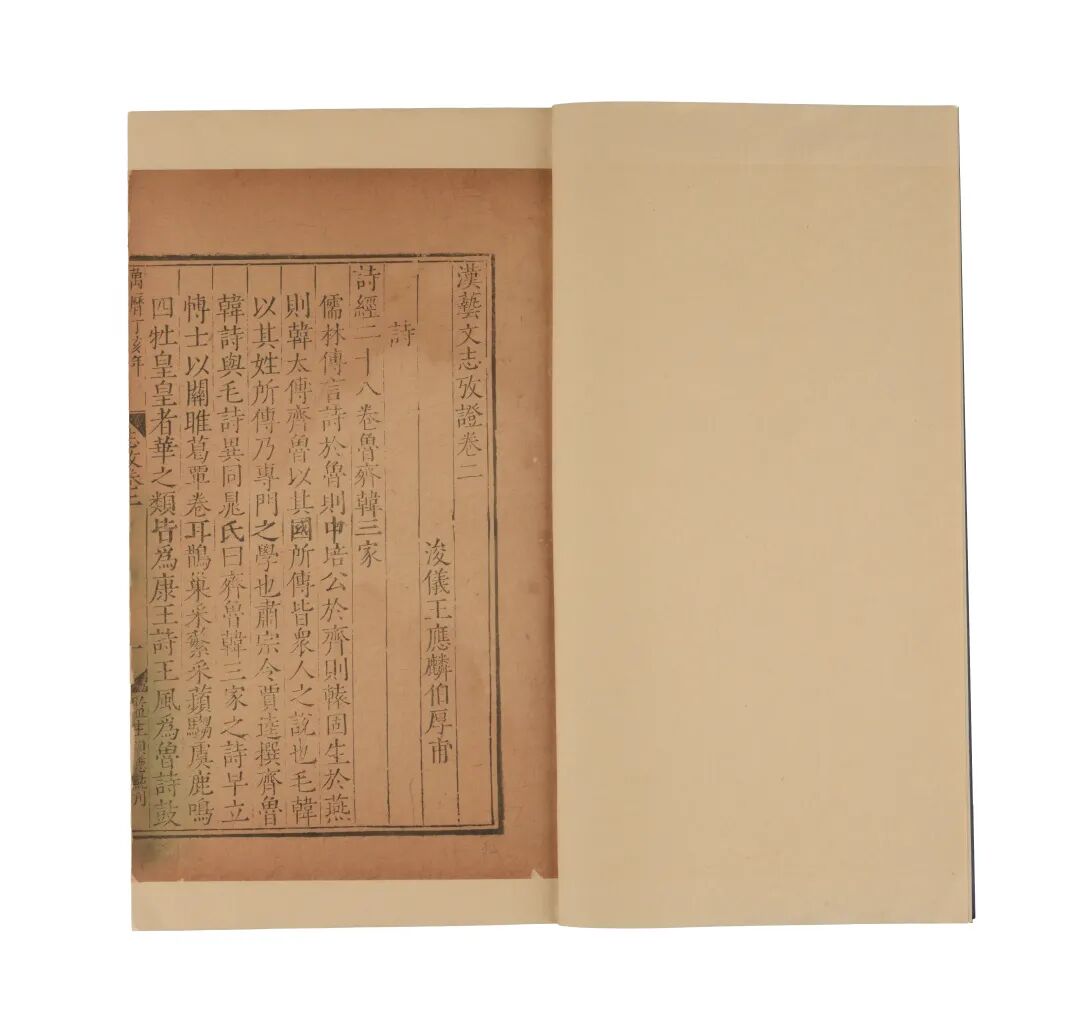 漢藝文志攷證卷二
浚儀王應麟伯厚甫
詩
詩經二十八卷魯齊韓三家
儒林傳言詩於魯則申培公於齊則轅固生於燕
則韓太傅齊魯以其國所傳皆衆人之說也毛韓
以其姓所傳乃專門之學也肅宗令賈逵撰齊魯
韓詩與毛詩異同晁氏曰齊魯韓三家之詩早立
愽士以關雎葛覃卷耳鵲巢采蘩采蘋騶虞鹿鳴
四牡皇皇者華之類皆爲康王詩王風爲魯詩鼓
萬曆丁亥年
志攷卷二
一
監生
刊